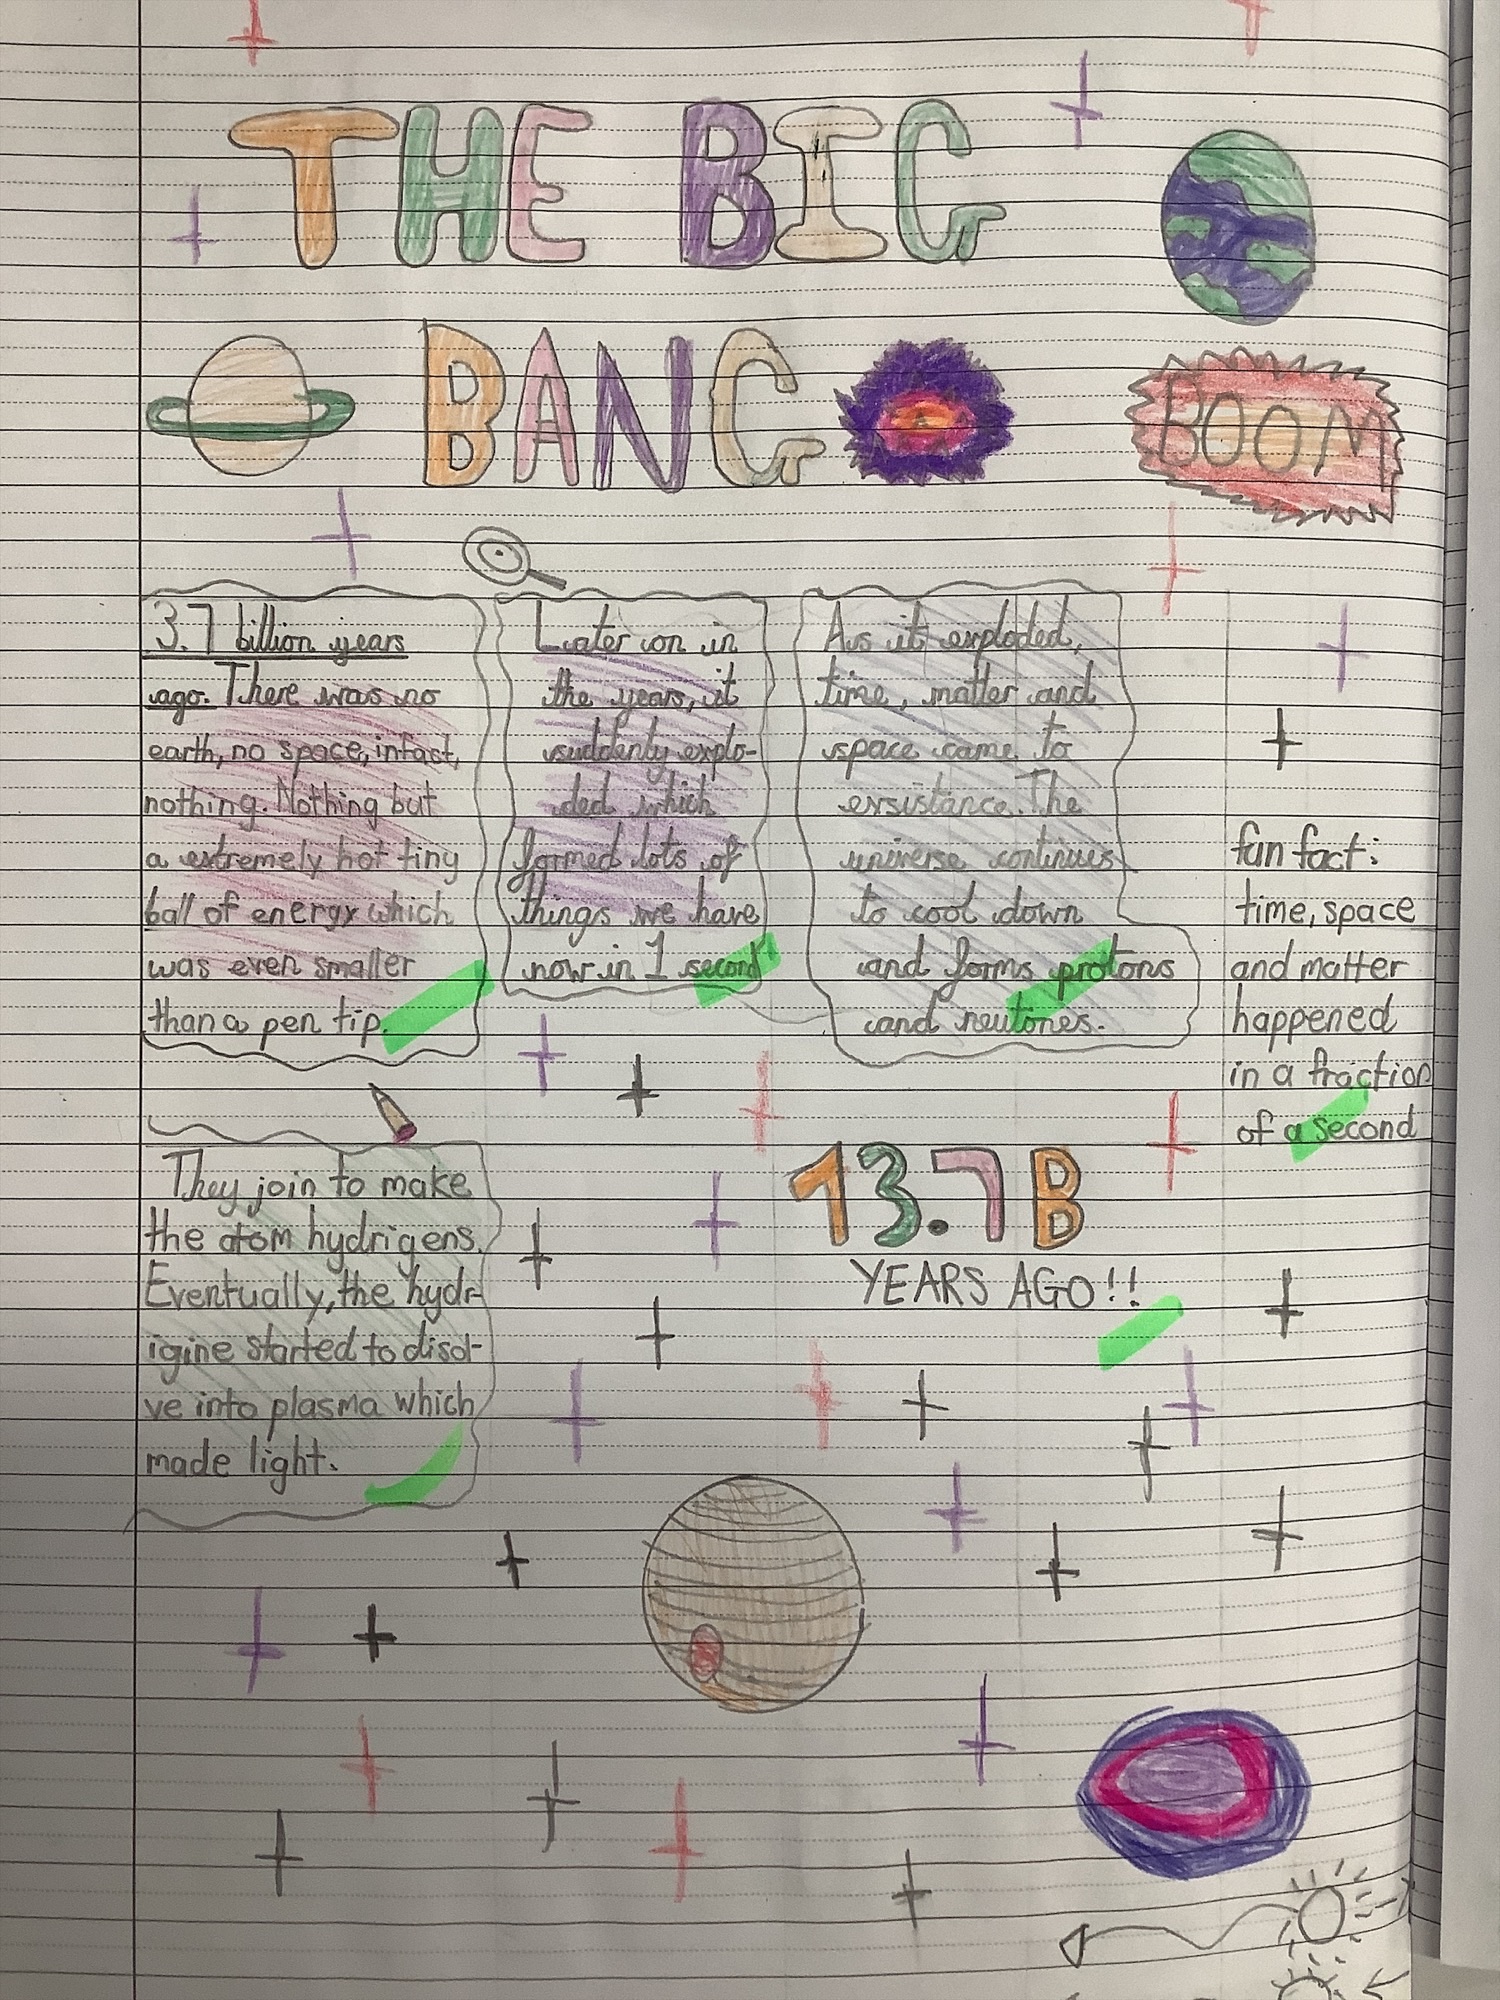 THE BIG
BANG
BOOM
3.7 billion years
ago. There was no
earth, no space, infact,
nothing. Nothing but
a extremely hot tiny
ball of energy which
was even smaller
than a pen tip.
Later on in
the years, it
suddenly explo-
ded which
formed lots of
things we have
now in 1 second
As it exploded,
time, matter and
space came to
exsistance. The
universe continues
to cool down
and forms protons
and neutones.
fun fact:
time, space
and matter
happened
in a fraction
of a second
They join to make
the atom hydrigens.
Eventually, the hydr-
igine started to disol-
ve into plasma which
made light.
13.7 B
YEARS AGO!!